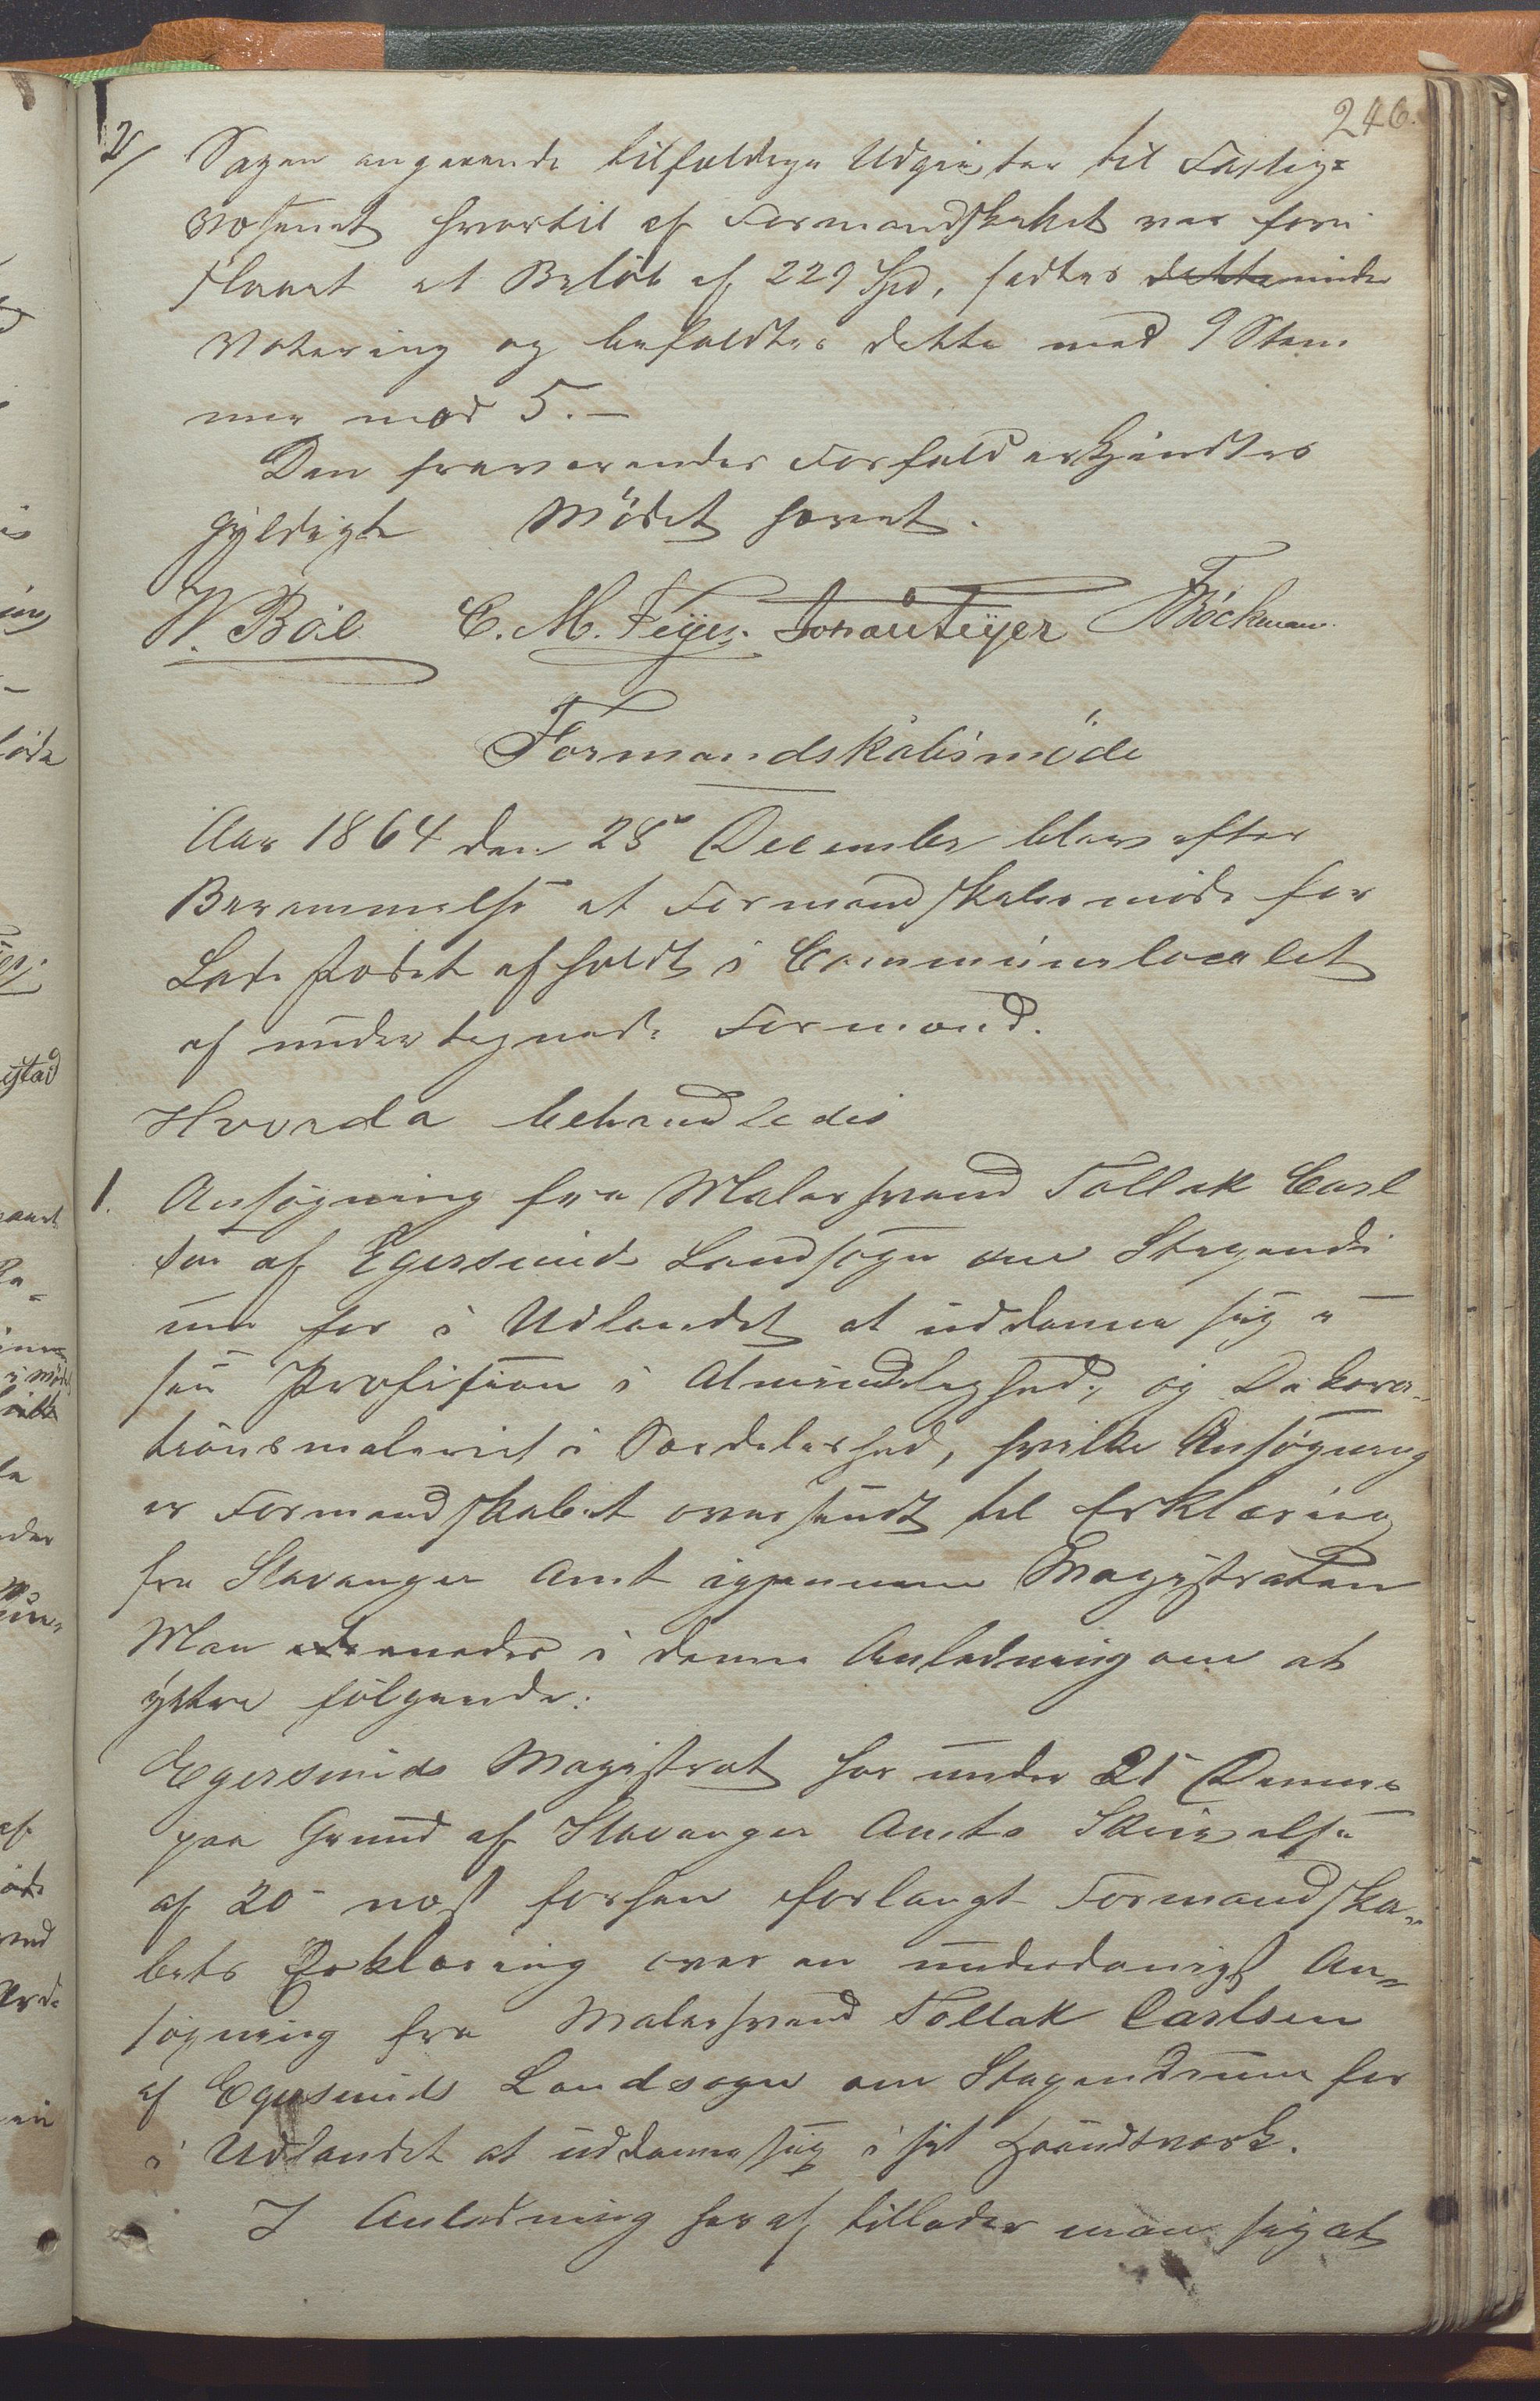 246.
2/ Sagen angaaende tilfældige Udgivter til Fattig=
væsenet hvortil af Formandskabet var fore
slaaet et Beløb af 229 Spd, sadtes dette under
Votering og befaldtes dette med 9 Stem
mer mod 5.—
Den fraværendes Forfald erkjendtes
gyldigt Mödet hævet.
W. Böe C. M. Feyer. Jonas Feyer F Böckman
Formandskabsmöde
Aar 1864 den 28de December blev efter
Berammelse et Formandskabsmöde for
Ladestedet afholdt i Communelocalet
af undertegnede Formand.
Hvorda behandledes
1. Ansøgning fra Malersvend Tollak Carl
sen af Egersunds Landsogn om Stipendi
um for i Udlandet at uddanne sig i
sin Profession i Almindelighed, og Dekora-
tionsmaleriet i Særdeleshed, hvilke Ansøgning
er Formandskabet oversendt til Erklæring
fra Stavanger Amt igjennem Magistraten
Man enedes i denne Anledning om at
ytre følgende:
Egersunds Magistrat har under 21 Dennes
paa Grund af Stavanger Amts Skrivelse
af 20de næst forhen forlangt Formandska-
bets Erklæring over en underdanigst An=
søgning fra Malersvend Tollak Carlsen
af Egersunds Landsogn om Stipendium for
i Udlandet at uddanne sig i sit Haandværk.
I Anledning heraf tillader man sig at